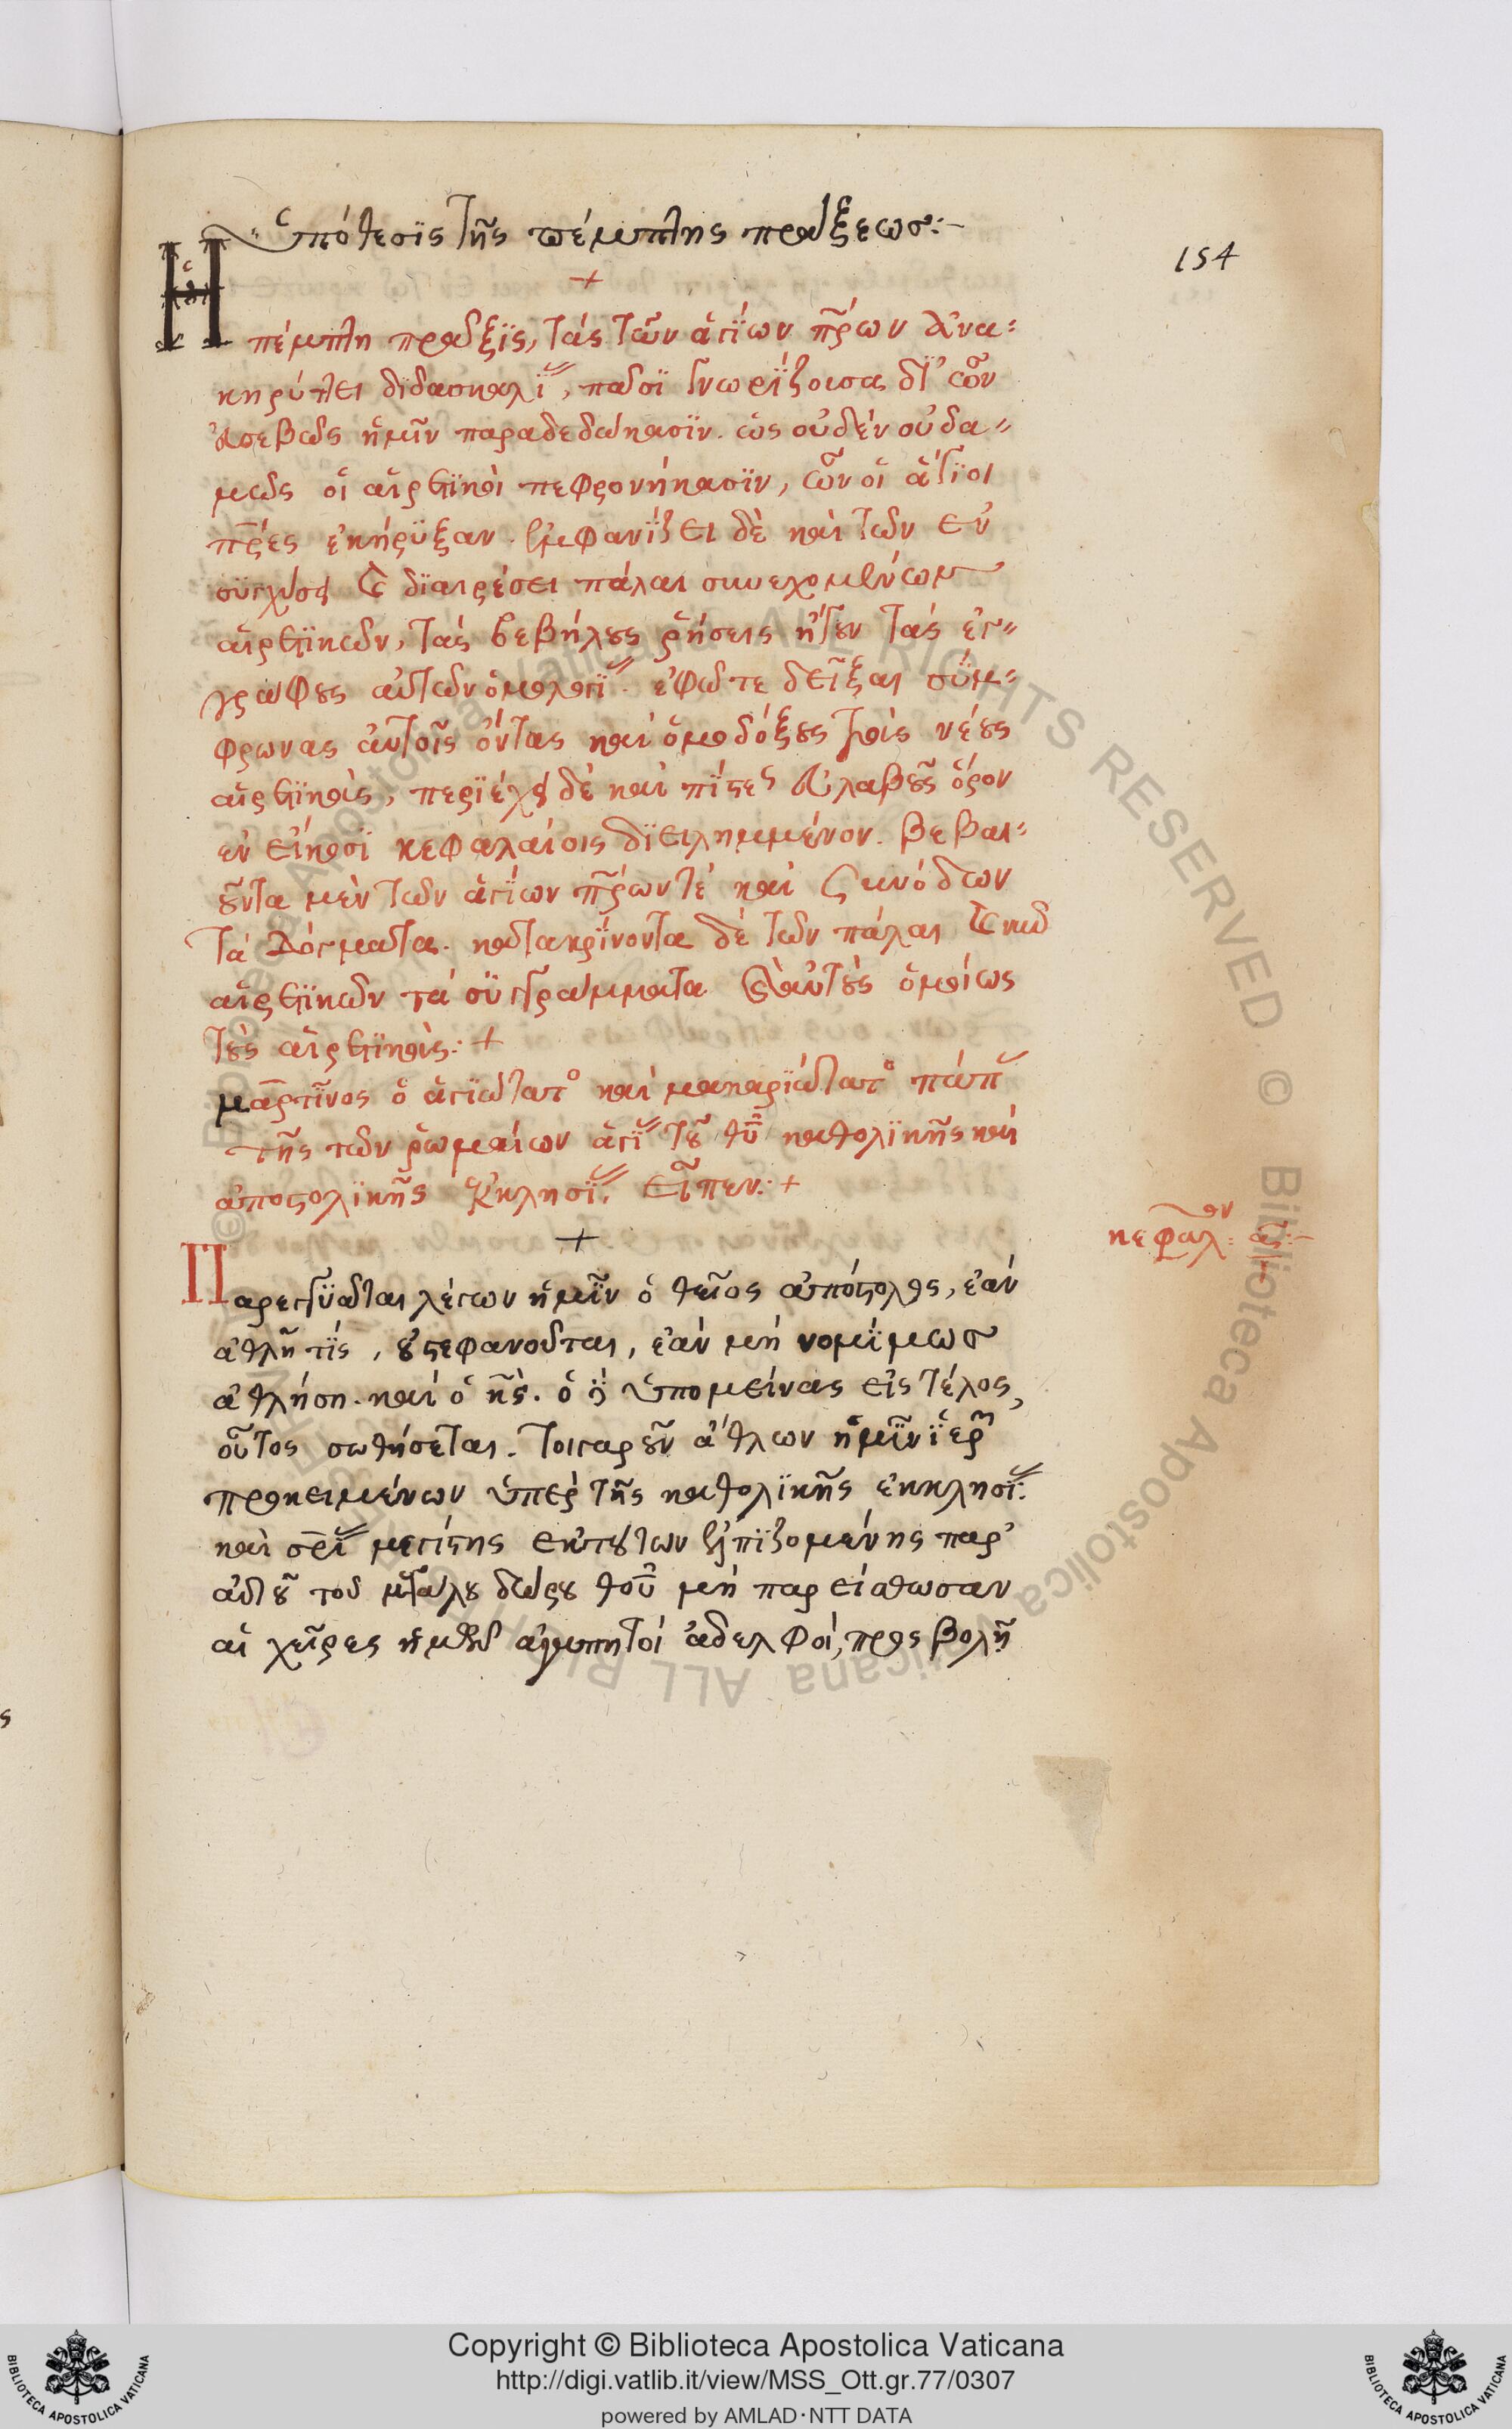 Ὑπόθεσϊς τῆς πέμπτης πράξεως:-
154
+
Ἡ πέμπτη πρᾶξϊς, τὰς τῶν ἁγίων πρ̅ων ἀνα-
κηρύττει διδασκαλί, πᾶσι γνωρίζουσα δι' ὧν
εὐσεβῶς ἡμῖν παραδεδώκασϊν. ὡς οὐδὲν οὐδα-
μῶς οἱ αἱρετϊκοὶ πεφρονήκασϊν, ὧν οἱ ἅγϊοι
πρ̅ες ἐκήρυξαν. ἐμφανίζει δὲ καὶ τῶν ἐν
συγχύσει καὶ διαιρέσει πάλαι συνεχομένων
αἱρετϊκῶν, τὰς βεβήλους ῥήσεις ἤγουν τὰς ἐγ-
γράφους αὐτῶν ὁμολογί. ἐφῶτε δεῖξαι σύμ-
φρωνας αὐτοῖς ὄντας καὶ ὁμοδόξους τοὺς νέους
αἱρετϊκοὺς, περϊέχει δὲ καὶ πίστε εὐλαβοῦς ὅρον
ἐν εἴκοσϊ κεφαλαίοις διειλημμένον. βεβαι-
οῦντα μὲν τῶν ἁγίων πρ̅ων τὲ καὶ συνόδων
τὰ δόγματα. κατακρίνοντα δὲ τῶν πάλαι καὶ νῦν
αἱρετϊκῶν τὰ συγγράμματα καὶ αὐτοὺς ὁμοίως
τοὺς αἱρετϊκούς:+
μαρτῖνος ὁ ἁγϊώτατο καὶ μακαρϊώτατο πάπ
τῆς τῶν ῥωμαίων ἁγί τοῦ θυ̅ καθολϊκῆς καὶ
ἀποστολϊκῆς ἐκκλησί. εἶπεν:+
+
κεφάλ:ον α:-
Παρεγγυᾶται λέγων ἡμῖν ὁ θεῖος ἀπόστολος, ἐὰν
ἀθλῇ τϊς, οὐ στεφανοῦται, ἐὰν μὴ νομίμως
ἀθλήσῃ. καὶ ὁ κς̅. ὁ δὲ ὑπομείνας εἰς τέλος,
οὗτος σωθήσεται. τοιγαροῦν ἄθλων ἡμῖν ἱερ
προκειμένων ὑπὲρ τῆς καθολϊκῆς ἐκκλησί.
καὶ σρ̅ί μεγίστης ἐκ τούτων ἐλπϊζομένης παρ'
αὐτοῦ τοῦ μεγάλου δώρου θοῦ μὴ παρείσθωσαν
αἱ χεῖρες ἡμῶν ἀγαπητοὶ ἀδελφοὶ, προσβολῇ
Copyright © Biblioteca Apostolica Vaticana
http://digi.vatlib.it/view/MSS_Ott.gr.77/0307
powered by AMLAD·NTT DATA